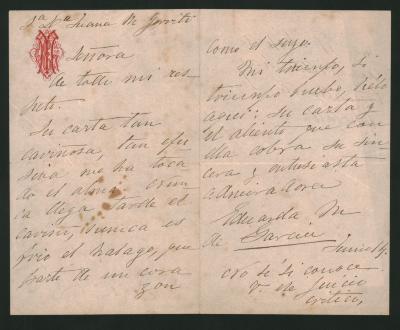 Sra. Dña Juana M Gorriti
Señora
De todo mi res
peto.
Su carta tan
cariñosa, tan efu
siva me ha toca
do el alma.
llega tarde el
cariño, nunca es
frio el halago, que
parte de un cora
zon
como el suyo.
Mi triunfo, si
triunfo hubo, hélo
aquí: su carta y
el aliento que con
ella cobra su sin
cera y entusiasta
admiradora
Eduarda M
de Garcia
Junio 14.
No sé si conoce
V. de juicio
critico,